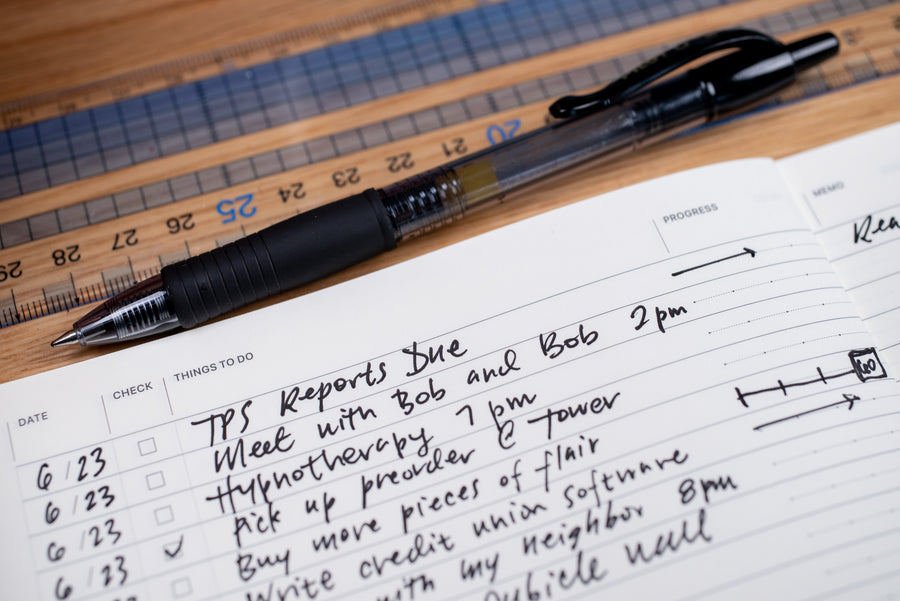 20 21 22 23 24 25 26 27 28 29
DATE CHECK THINGS TO DO PROGRESS MEMO
6/23 TPS Reports Due
6/23 Meet with Bob and Bob 2pm
6/23 Hypnotherapy 7 pm
6/23 ✓ Pick up preorder @ Tower
Buy more pieces of flair
Write credit union software
with my neighbor 8pm
Cubicle wall